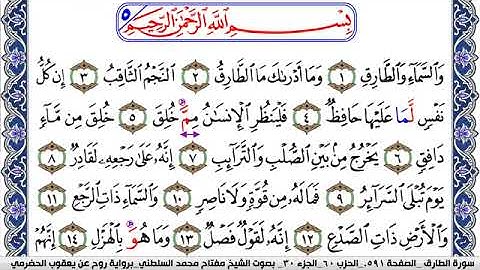 بِسْمِ اللَّهِ الرَّحْمَٰنِ الرَّحِيمِ ٥
وَالسَّمَآءِ وَالطَّارِقِ ١ وَمَآ أَدْرَىٰكَ مَا الطَّارِقُ ٢ النَّجْمُ الثَّاقِبُ ٣ إِن كُلُّ
نَفْسٍ لَّمَا عَلَيْهَا حَافِظٌ ٤ فَلْيَنظُرِ الْإِنسَٰنُ مِمَّ خُلِقَ ٥ خُلِقَ مِن مَّآءٍ
دَافِقٍ ٦ يَخْرُجُ مِنۢ بَيْنِ الصُّلْبِ وَالتَّرَآئِبِ ٧ إِنَّهُۥ عَلَىٰ رَجْعِهِۦ لَقَادِرٌ ٨
يَوْمَ تُبْلَى السَّرَآئِرُ ٩ فَمَا لَهُۥ مِن قُوَّةٍ وَلَا نَاصِرٍ ١٠ وَالسَّمَآءِ ذَاتِ الرَّجْعِ ١١
وَالْأَرْضِ ذَاتِ الصَّدْعِ ١٢ إِنَّهُۥ لَقَوْلٌ فَصْلٌ ١٣ وَمَا هُوَ بِالْهَزْلِ ١٤ إِنَّهُمْ
سورة الطارق_ الصفحة ٥٩١_ الحزب ٦٠_ الجزء ٣٠_ بصوت الشيخ مفتاح محمد السلطني_ برواية روح عن يعقوب الحضرمي